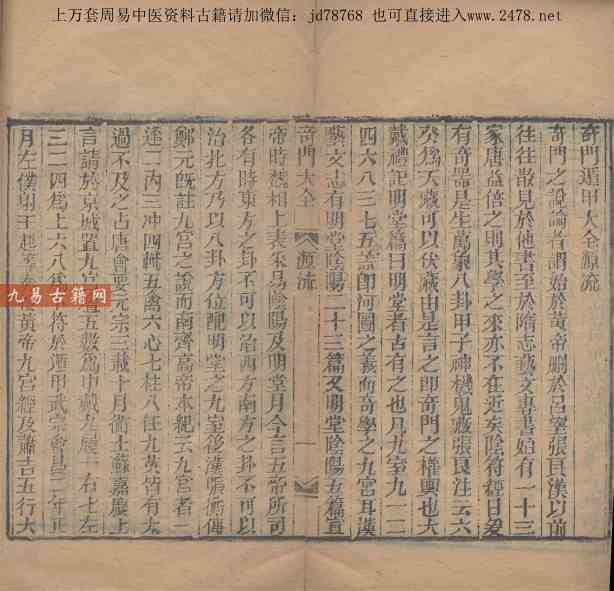 上万套周易中医资料古籍请加微信：jd78768 也可直接进入www.2478.net
奇門遁甲大全源流
奇門之說論者謂始於黃帝刪於呂望張良漢以前
往往散見於他書至於隋志藝文專書始有一十三
家唐益倍之則其學之來亦不在近矣陰符經曰爰
有奇器是生萬象八卦甲子神機鬼藏張良注云六
癸為天藏可以伏藏由是言之即奇門之權輿也大
戴禮記明堂篇曰明堂者古有之也凡九室九一二
四六八三七五蓋即河圖之義而奇學之九宮耳漢
藝文志有明堂陰陽二十三篇又明堂陰陽五篇宣
奇門大全 源流
帝時魏相上表采易陰陽及明堂月令言五帝所司
各有時東方之卦不可以治西方南方之卦不可以
治北方乃以八卦方位配明堂之九室後漢張衡傳
鄭元旣註九宮之說而南齊高帝本紀云九宮者一
逢二內三冲四輔五禽六心七柱八任九英皆有太
過不及之占唐會要元宗三載十月術士蘇嘉慶上
言請於京城置九宮 五數為中戴九履一右七左
三二四為上六八為 符於遁甲武宗會昌二年正
月左僕射王起等奏 黃帝九宮經及蕭吉五行大
九易古籍网